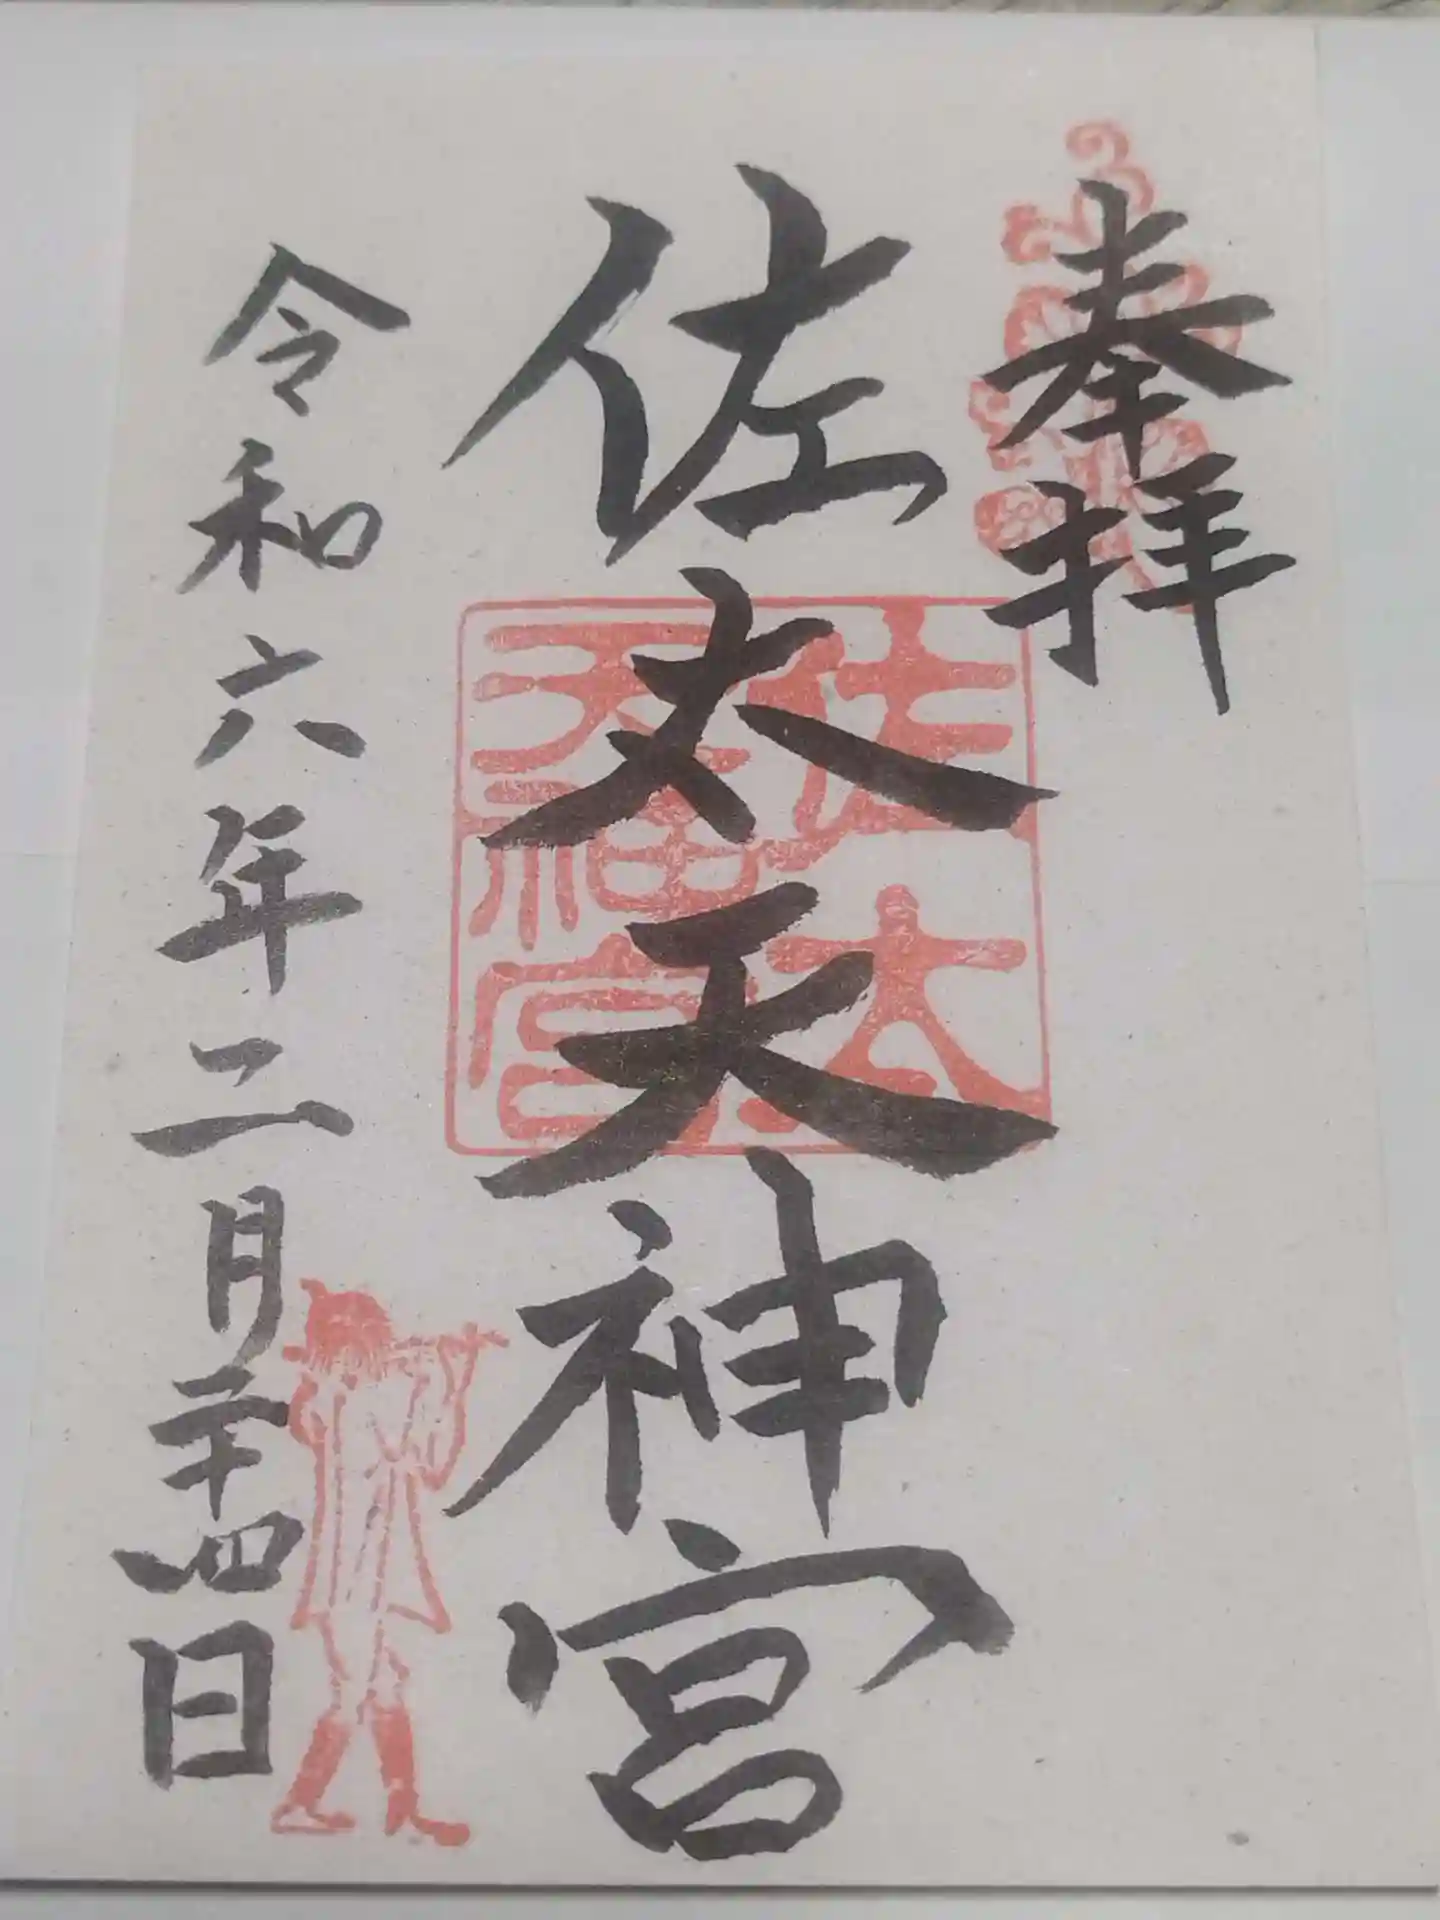 奉拝
佐太天神宮
佐太
天神宮
令和六年二月二十四日